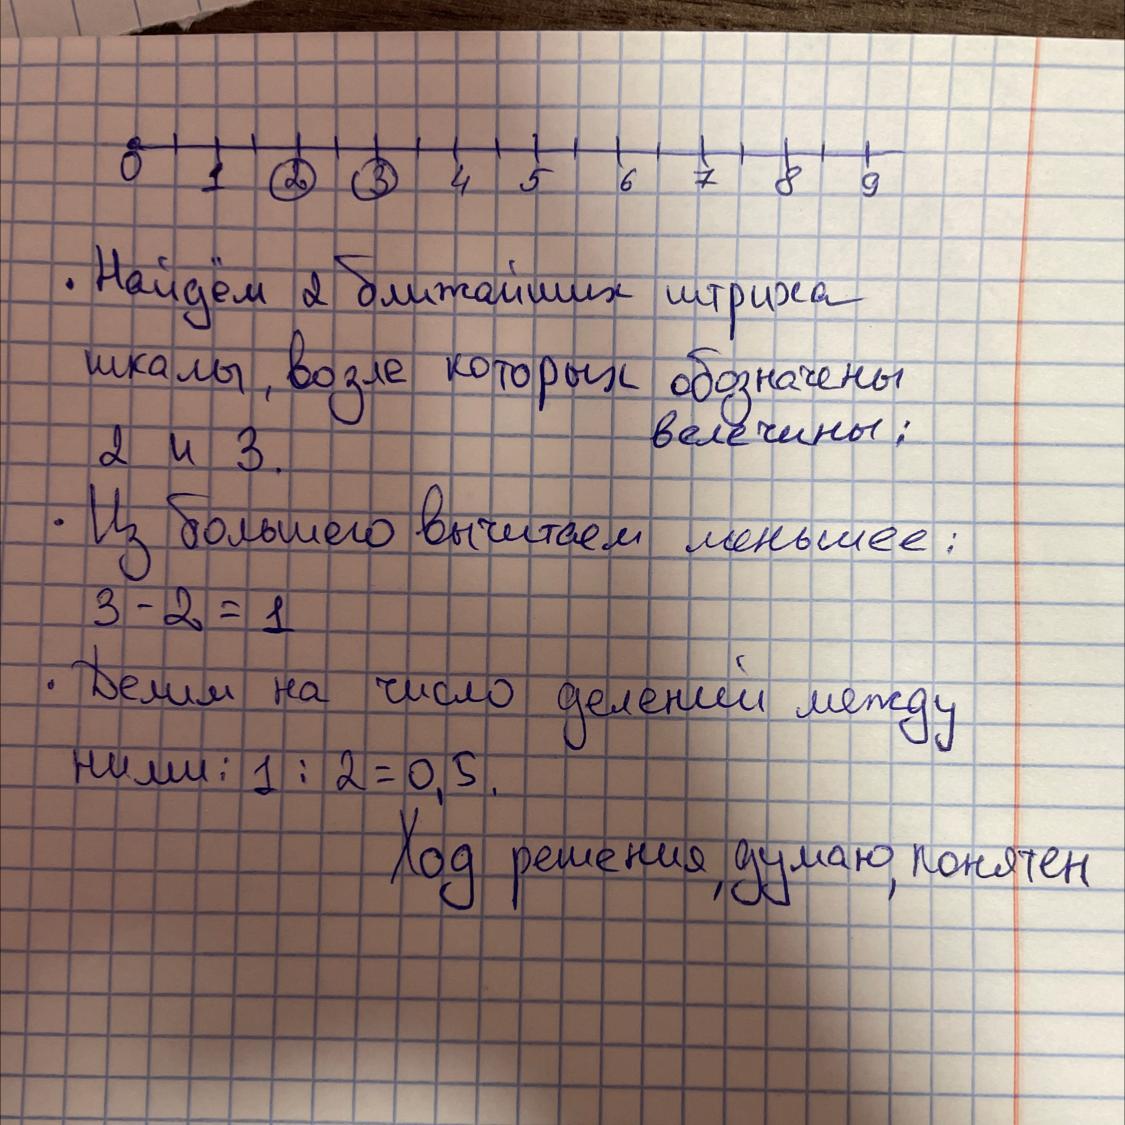 0 1 2 3 4 5 6 7 8 9
· Найдём 2 ближайших штриха
шкалы, возле которых обозначены
велечины:
2 и 3.
· Из большего вычитаем меньшее:
3 - 2 = 1
· Делим на число делений между
ними: 1 : 2 = 0,5.
Ход решения, думаю, понятен